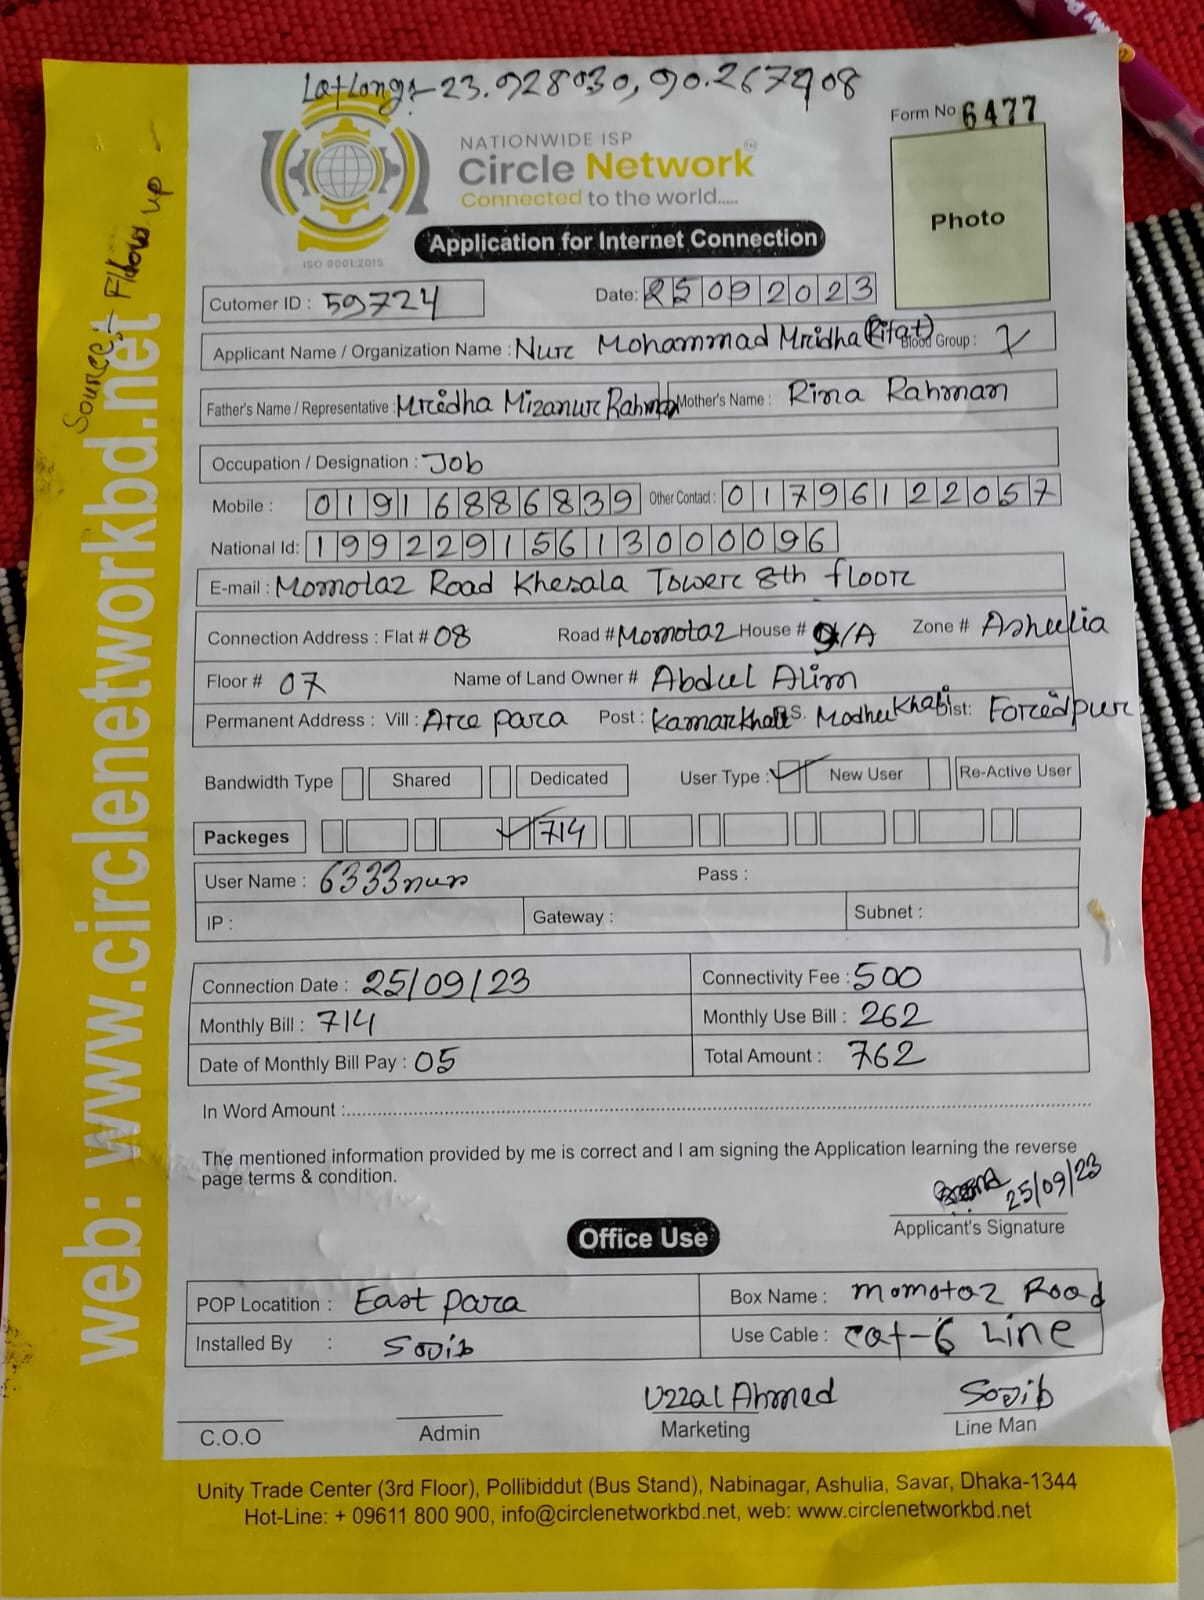 LatLong:- 23.928030, 90.267908
Form No 6477
NATIONWIDE ISP
Circle Network
Connected to the world.....
ISO 9001:2015
Photo
Application for Internet Connection
Source:- Fllow up -
web: www.circlenetworkbd.net
Cutomer ID : 59724
Date: 25092023
Applicant Name / Organization Name : Nur Mohammad Mridha (Rifat) Blood Group :
Father's Name / Representative : Mridha Mizanur Rahman Mother's Name : Rina Rahman
Occupation / Designation : Job
Mobile : 01916886839 Other Contact : 01796122057
National Id: 19922915613000096
E-mail : Momotaz Road Khesala Tower 8th floor
Connection Address : Flat # 08 Road # Momotaz House # /A Zone # Ashulia
Floor # 07 Name of Land Owner # Abdul Alim
Permanent Address : Vill : Are para Post : Kamarkhali P.S. Modhukhali Dist: Foridpur
Bandwidth Type Shared Dedicated User Type : New User Re-Active User
Packeges 714
User Name : 6333nur Pass :
IP : Gateway : Subnet :
Connection Date : 25/09/23 Connectivity Fee : 500
Monthly Bill : 714 Monthly Use Bill : 262
Date of Monthly Bill Pay : 05 Total Amount : 762
In Word Amount :
The mentioned information provided by me is correct and I am signing the Application learning the reverse
page terms & condition.
25/09/23
Applicant's Signature
Office Use
POP Locatition : East para Box Name : Momotaz Road
Installed By : Sojib Use Cable : Cat-6 Line
Uzzal Ahmed Sojib
C.O.O Admin Marketing Line Man
Unity Trade Center (3rd Floor), Pollibiddut (Bus Stand), Nabinagar, Ashulia, Savar, Dhaka-1344
Hot-Line: + 09611 800 900, info@circlenetworkbd.net, web: www.circlenetworkbd.net